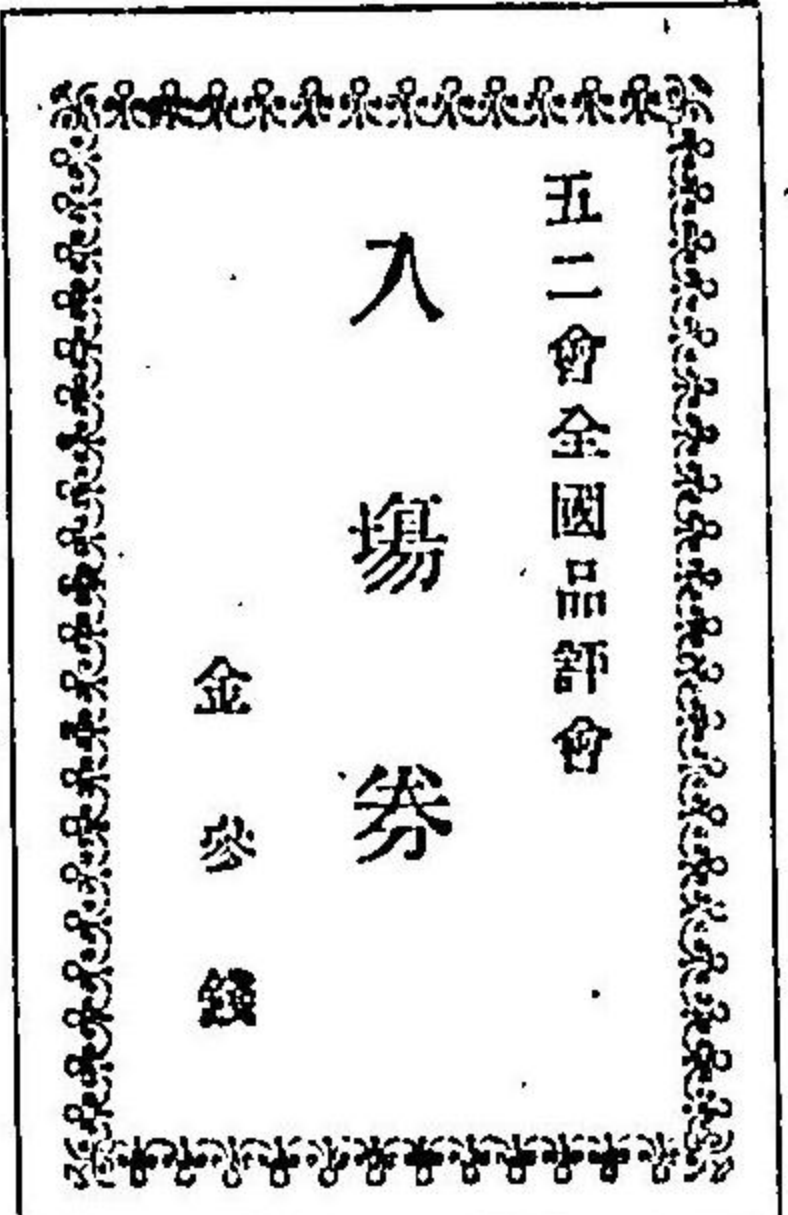 五二會全國品評會
入場券
金參錢